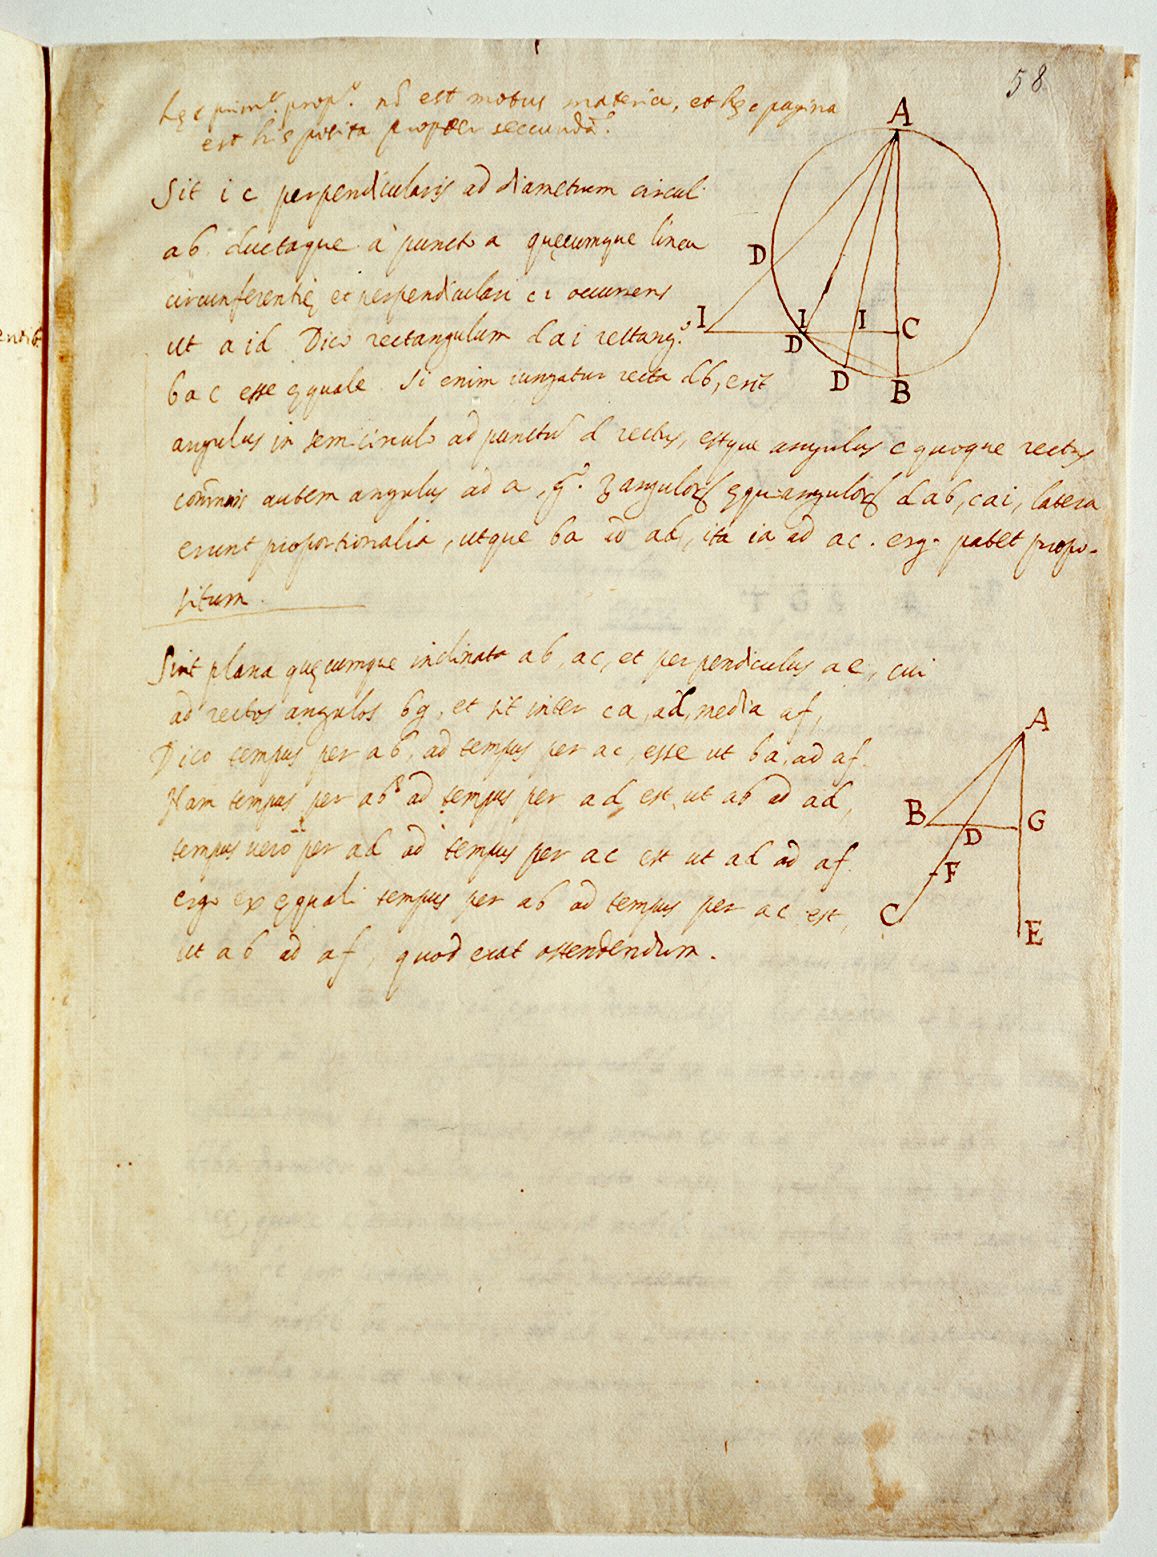 58
hęc prim.ª prop.º nõ est motus materia, et hęc pagina
est hic posita propter seccundã.
Sit i c perpendicularis ad diametrum circuli
ab. ductaque à puncto a quęcumque linea
circunferentię et perpendiculari c i occurrens
ut a i d. Dico rectangulum d a i rectang.º
b a c esse ęquale. Si enim iungatur recta d b, erit
angulus in semicirculo ad punctũ d rectus, estque angulus c quoque rectus
com̃unis autem angulus ad a, q.ᵉ angulor ęquiangulor d a b, c a i, latera
erunt proportionalia, utque b a ad a d, ita i a ad a c. ergo patet propo-
situm.
Sint plana quęcumque inclinata a b, a c, et perpendiculus a e, cui
ad rectos angulos b g, et sit inter c a, a d, media a f,
Dico tempus per a b, ad tempus per a c, esse ut b a, ad a f.
Nam tempus per a b ad tempus per a d, est ut a b ad a d,
tempus vero per a d ad tempus per a c est ut a d ad a f.
ergo ex ęquali tempus per a b ad tempus per a c est,
ut a b ad a f, quod erat ostendendum.
A
D
I
I
I
C
D
D
B
A
B
D
G
F
C
E